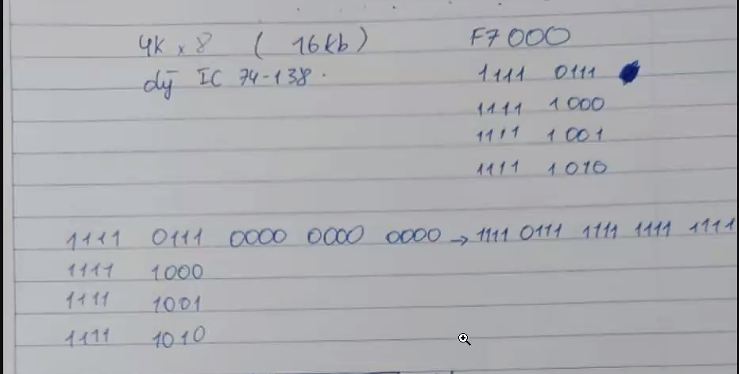 4K x 8 ( 16kb) F7000
dg IC 74-138. 1111 0111
1111 1000
1111 1001
1111 1010
1111 0111 0000 0000 0000 → 1111 0111 1111 1111 1111
1111 1000
1111 1001
1111 1010